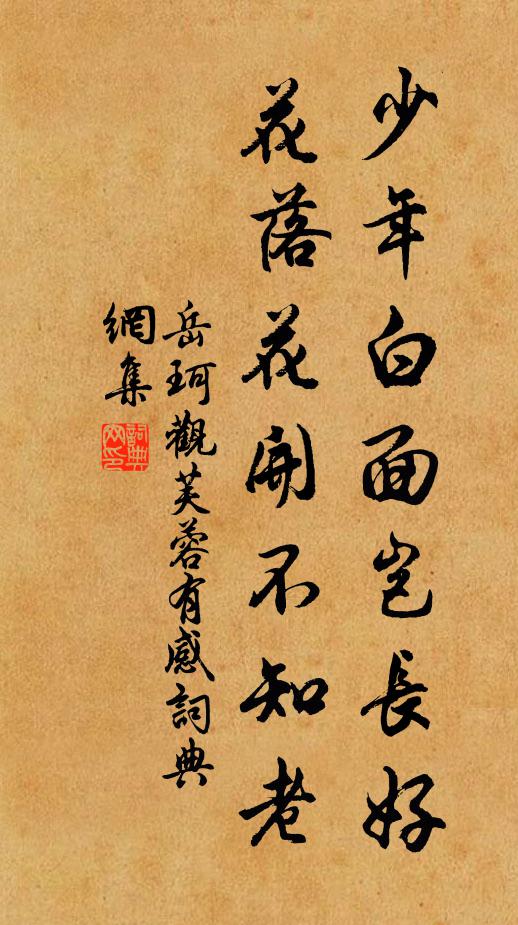 少年白面豈長好
花落花開不知老
岳珂觀芙蓉有感詞典
網集
詞典
网印